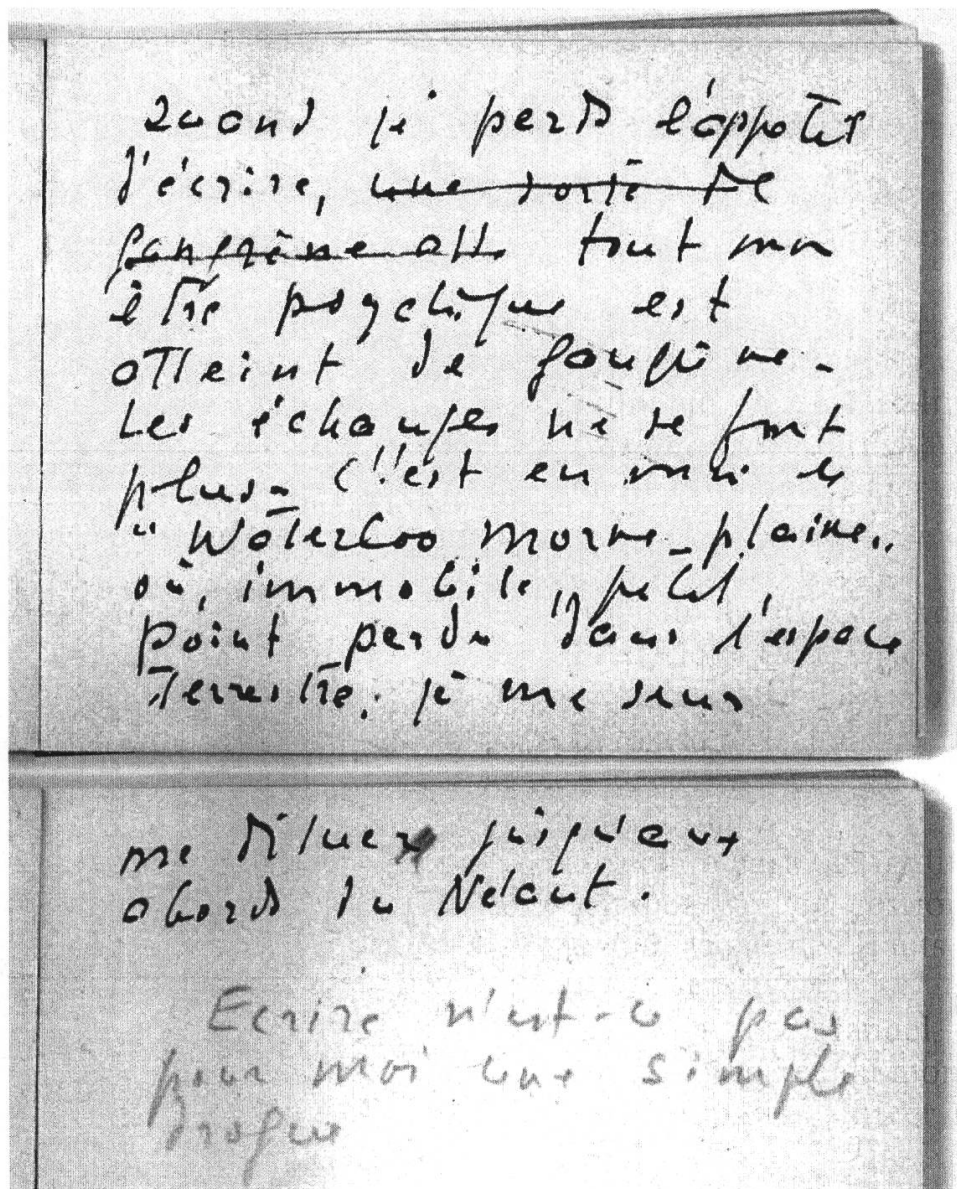 Quand je perds l'appétit
d'écrire, une sorte de
gangrène att tout mon
être psychique est
atteint de gangrène -
Les échanges ne se font
plus - C'est en moi le
"Waterloo morne-plaine"
où, immobile, petit
point perdu dans l'espace
terrestre, je me sens
me diluer jusqu'aux
abords du Néant.
Ecrire n'est-ce pas
pour moi une simple
drogue